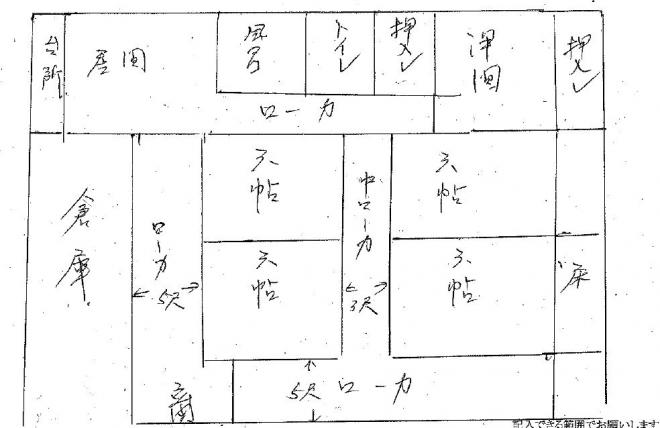 台所
居間
風呂
トイレ
押入レ
洋間
押入レ
ローカ
倉庫
ローカ
5尺
六帖
六帖
中ローカ
3尺
六帖
六帖
床
5尺 ローカ
記入できる範囲でお願いします